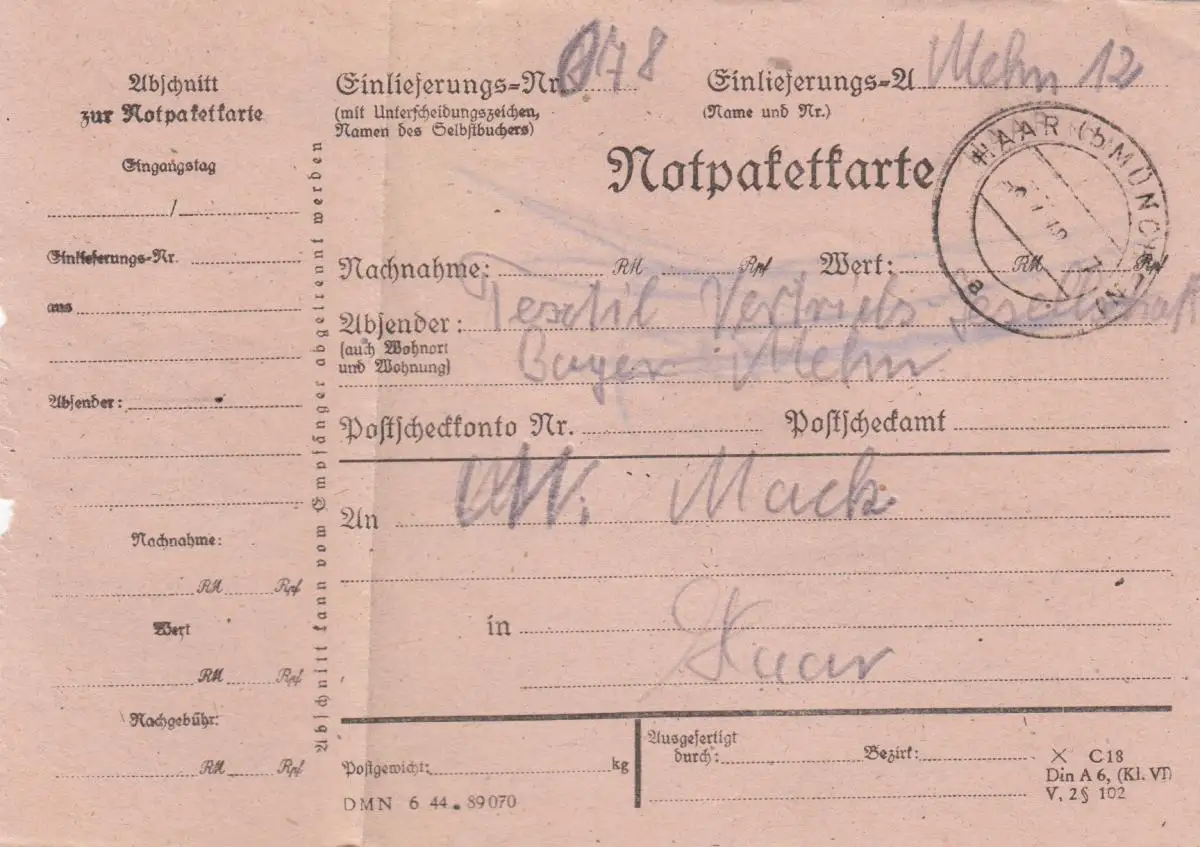 Abschnitt
zur Notpaketkarte
Eingangstag
/
Einlieferungs-Nr.
aus
Absender:
Nachnahme:
RM Rpf
Wert
RM Rpf
Nachgebühr:
RM Rpf
Abschnitt kann vom Empfänger abgetrennt werben
Einlieferungs-Nr. 178
(mit Unterscheidungszeichen,
Namen des Selbstbuchers)
Einlieferungs-A
(Name und Nr.)
12
Notpaketkarte
HAAR (b MÜNCHEN)
a
Nachnahme: RM Rpf Wert: RM Rpf
Absender: Textil Vertriebs-Gesellschaft
(auch Wohnort
und Wohnung)
Bayer
Postscheckkonto Nr. Postscheckamt
An W. Mack
in Haar
Postgewicht: kg
DMN 6 44. 89070
Ausgefertigt
durch: Bezirk:
X C 18
Din A 6, (Kl. VI)
V, 2 § 102